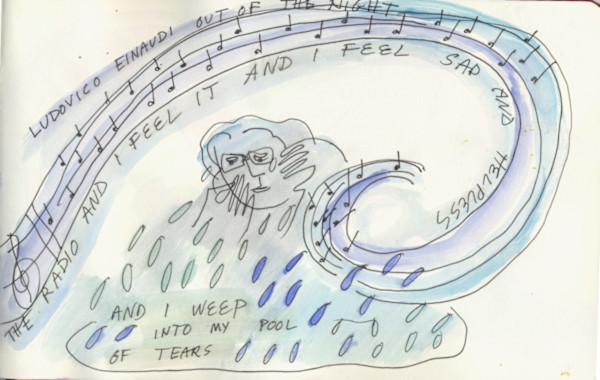 LUDOVICO EINAUDI OUT OF THE NIGHT
THE RADIO AND I FEEL IT AND I FEEL SAD AND HELPLESS
AND I WEEP
INTO MY POOL
OF TEARS